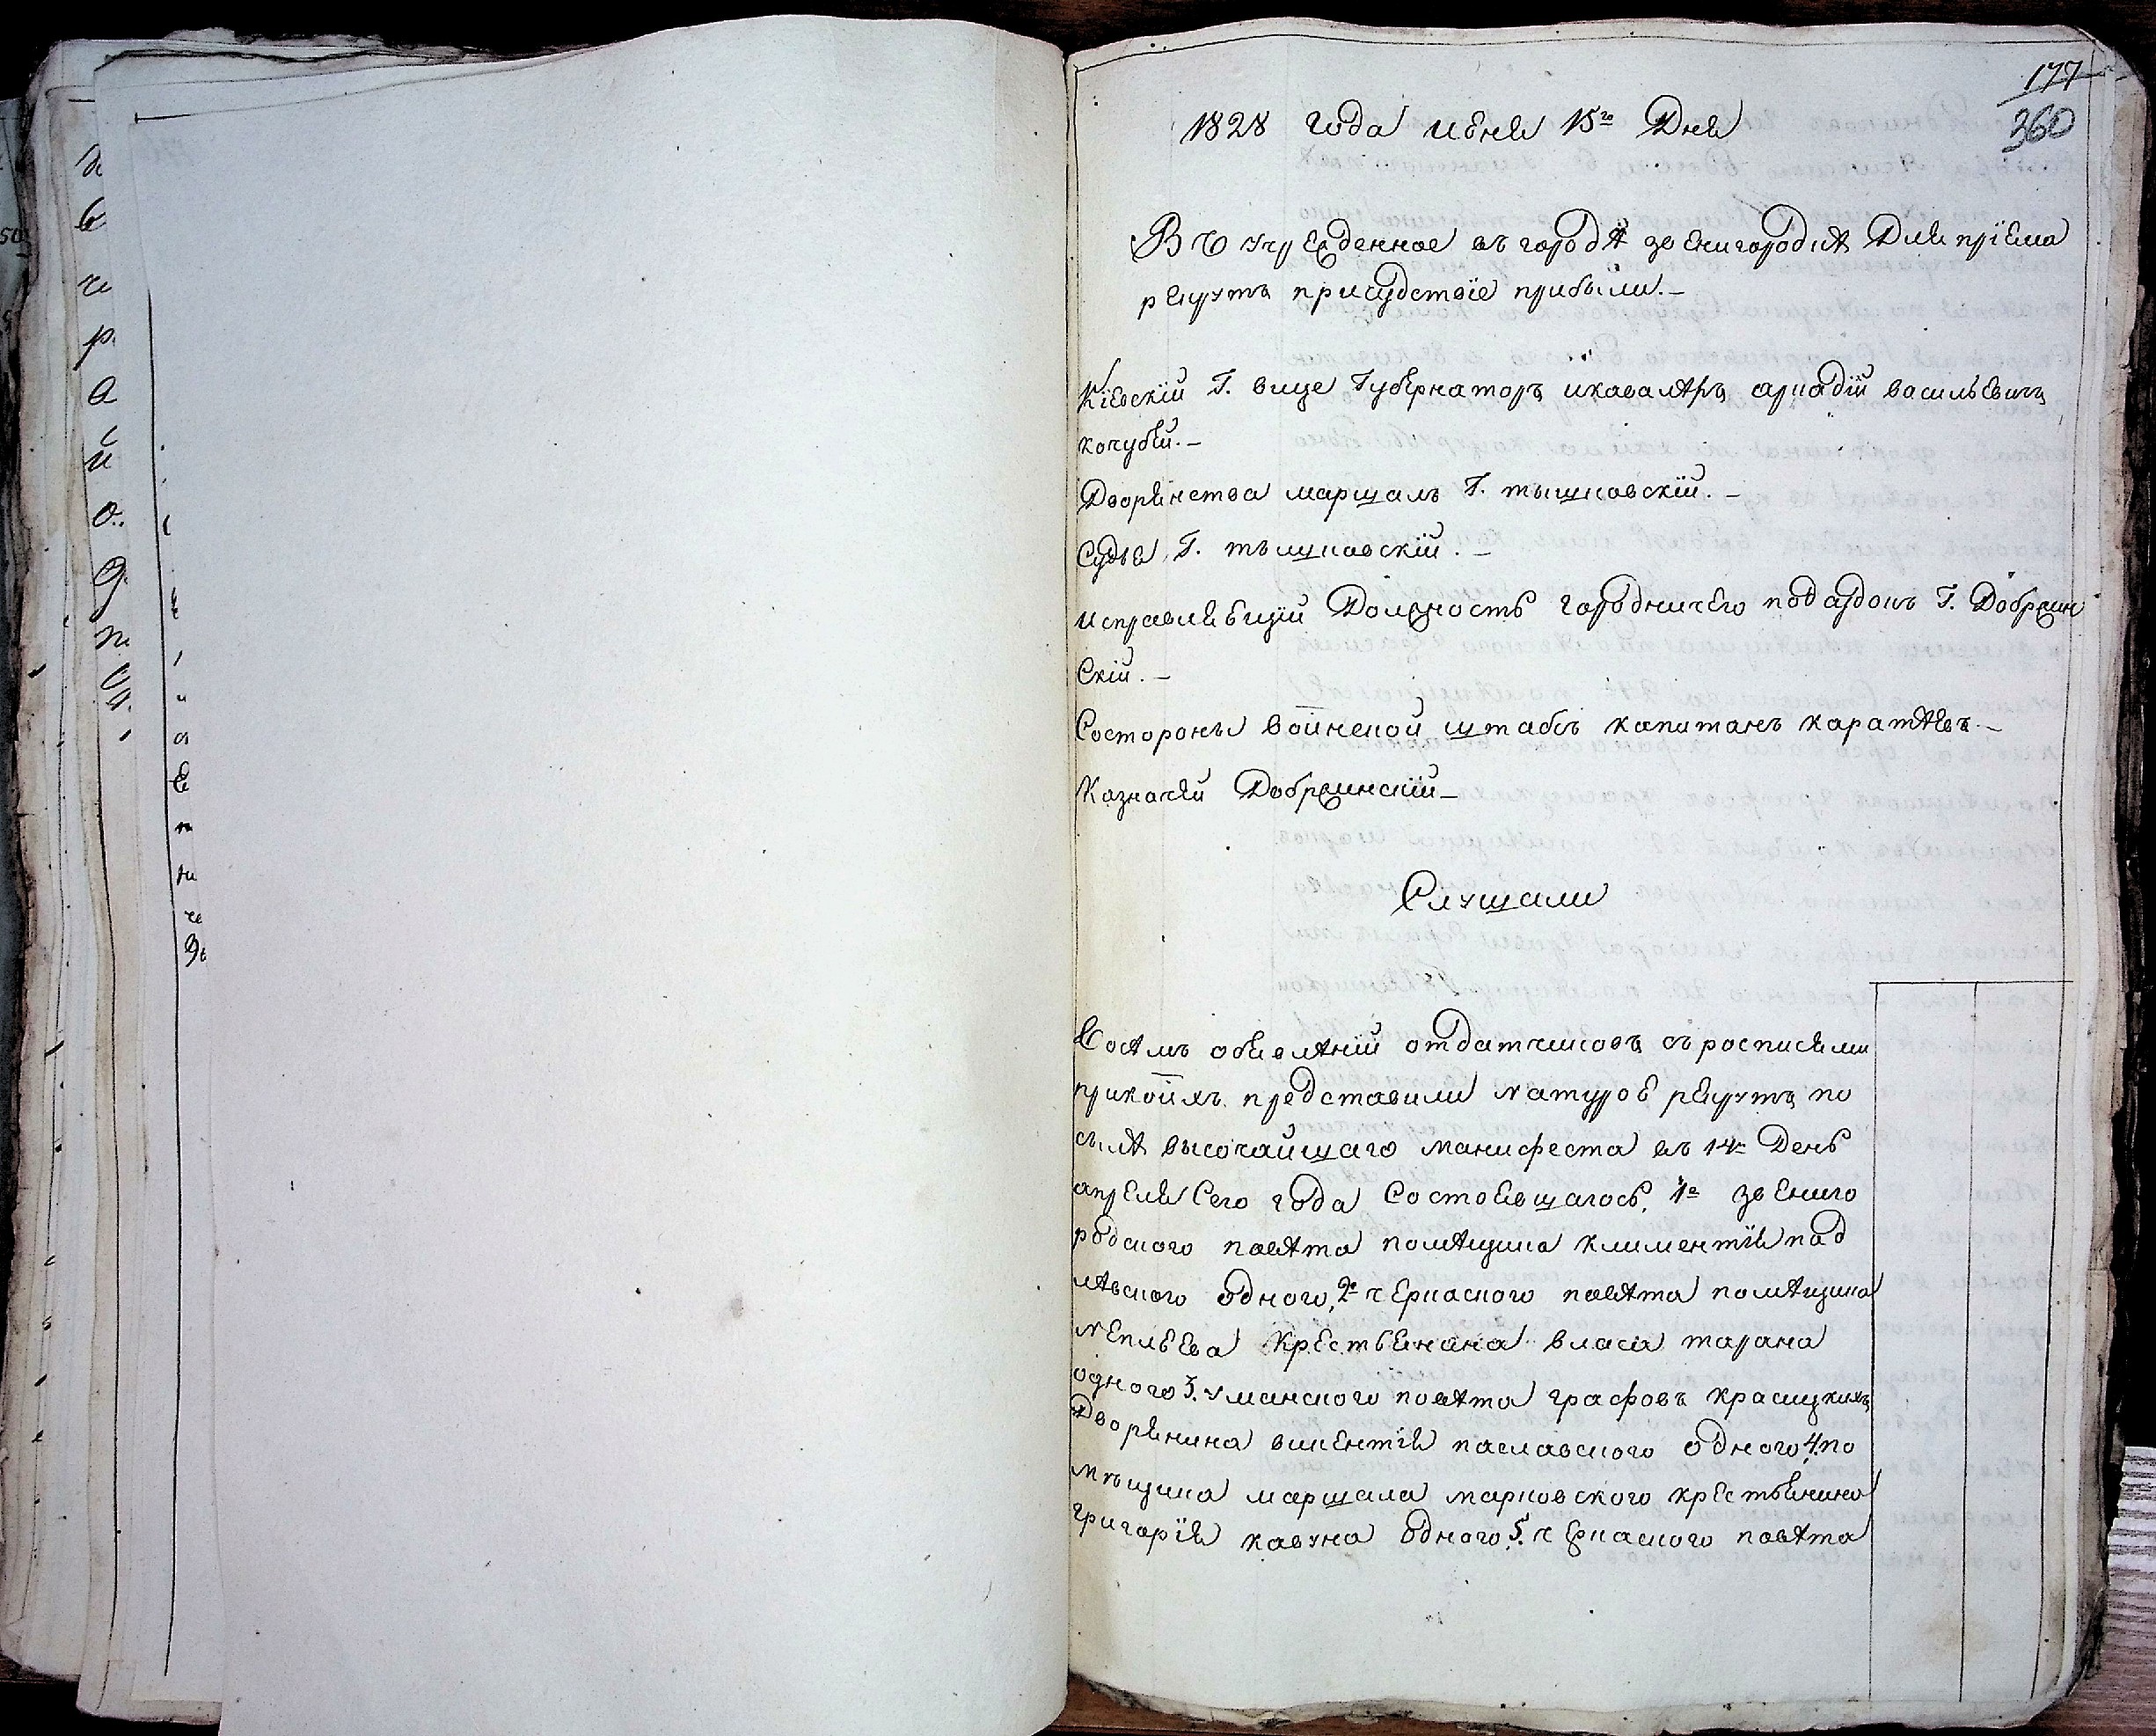 177
360
1828 года июня 15го Дня
Въ учрежденное въ городѣ звенигородкѣ Для пріема
рекрутъ присудствіе прибыли.—
Кіевскій Г. вице Губернаторъ икавалѣръ аркадій васильевичъ
кочубей.—
Дворянства маршалъ Г. тышковскій.—
Судья Г. тышковскій.—
исправляющій Должность городничего подсудокъ Г. Добржин
Скій.—
Состороны воинской штабсъ капитанъ каратѣевъ.—
Казначей Добржинскій—
Слушали
объявленій отдатчиковъ съросписями
прикоихъ представили натурою рекрутъ по
силѣ высочайшаго манифеста въ 14е День
апреля Сего года Состоявшагось, 1е звениго
родского повѣта помѣщика климентія под
одного, 2е черкаского повѣта помѣщика
крестьянина власа тарана
одного 3. уманского повѣта графовъ красицкихъ
Дворянина викентія паславского одного 4. по
мѣщика маршала марковского крестьянина
григорія кавуна одного 5. черкаского повѣта